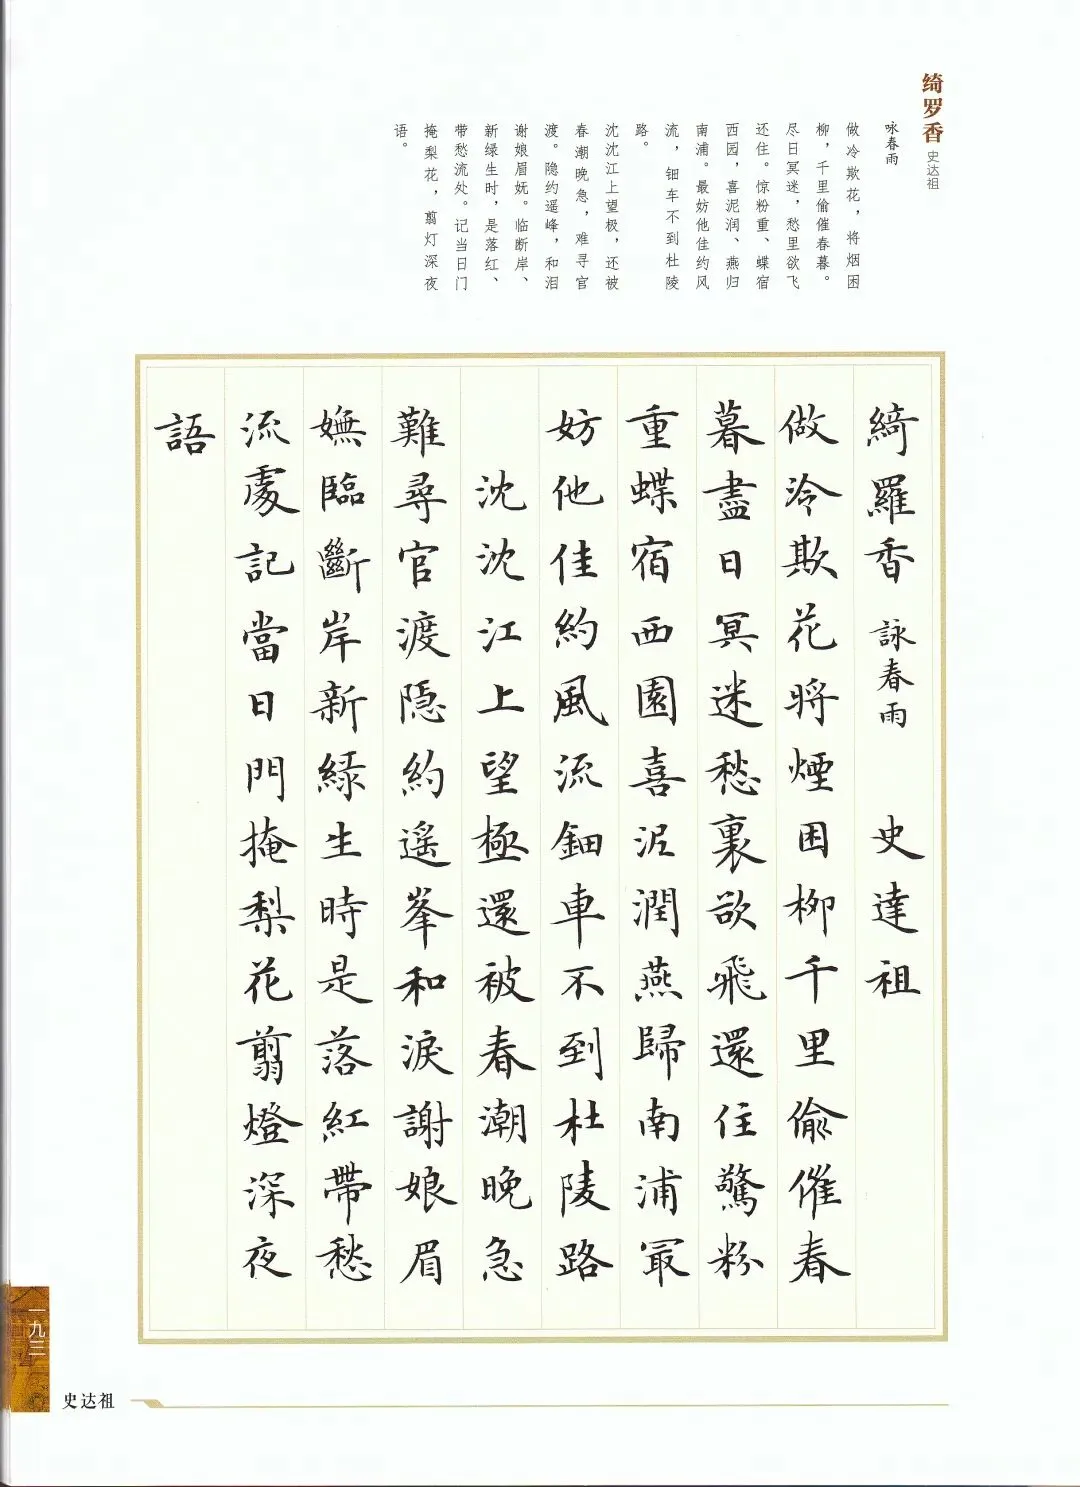 绮罗香 史达祖
咏春雨
做冷欺花，将烟困
柳，千里偷催春暮。
尽日冥迷，愁里欲飞
还住。惊粉重、蝶宿
西园，喜泥润、燕归
南浦。最妨他佳约风
流，钿车不到杜陵
路。
沈沈江上望极，还被
春潮晚急，难寻官
渡。隐约遥峰，和泪
谢娘眉妩。临断岸、
新绿生时，是落红、
带愁流处。记当日门
掩梨花，翦灯深夜
语。
綺羅香 詠春雨 史達祖
做冷欺花將煙困柳千里偷催春
暮盡日冥迷愁裏欲飛還住驚粉
重蝶宿西園喜泥潤燕歸南浦冣
妨他佳約風流鈿車不到杜陵路
沈沈江上望極還被春潮晚急
難尋官渡隱約遥峯和淚謝娘眉
嫵臨斷岸新緑生時是落紅帶愁
流處記當日門掩梨花翦燈深夜
語
一九三
史达祖